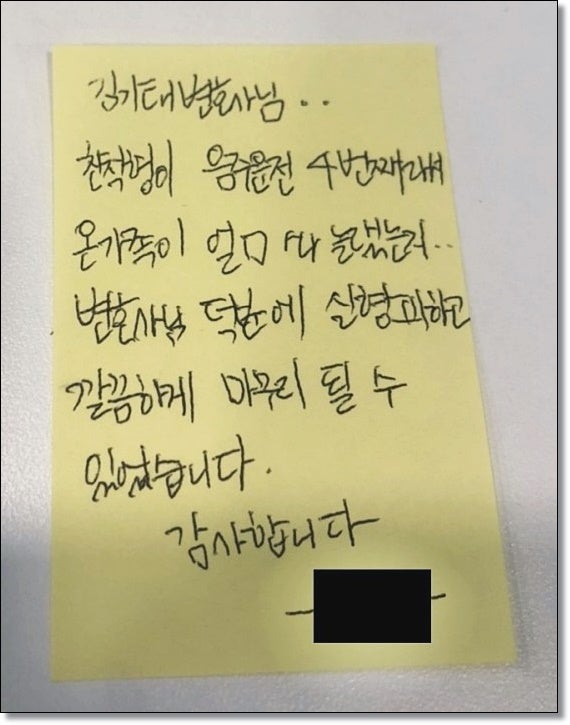 김기태변호사님..
친척명이 음주운전 4번째래서
온가족이 얼마나 놀랬는지..
변호사님 덕분에 실형피하고
깔끔하게 마무리 될 수
있었습니다.
감사합니다